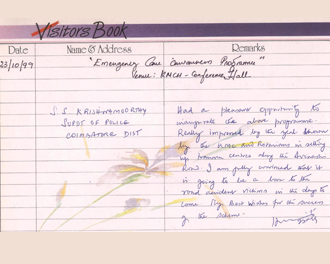 Visitors Book
Date Name & Address Remarks
23/10/99 "Emergency Care Awareness Programme"
Venue: KMCH - Conference Hall.
S. S. KRISHNAMOORTHY
SUPDT OF POLICE
COIMBATORE DIST
Had a pleasant opportunity to
inaugurate the above programme.
Really impressed by the zeal shown
by the hospl and Rotarians in setting
up trauma centres along the
I am fully convinced that it
is going to be a boon to the
road accident victims in the days to
come. My Best Wishes for the success
of the scheme.